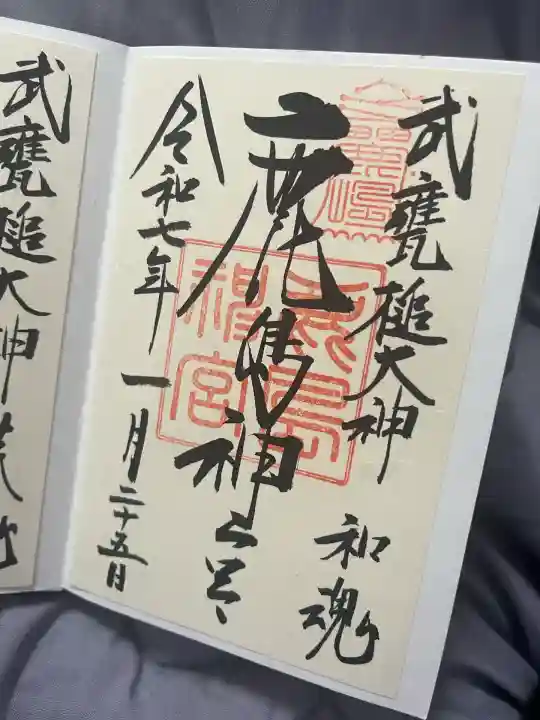 武甕槌大神
和魂
鹿島神宮
令和七年一月二十五日
鹿島神宮
武甕槌大神荒